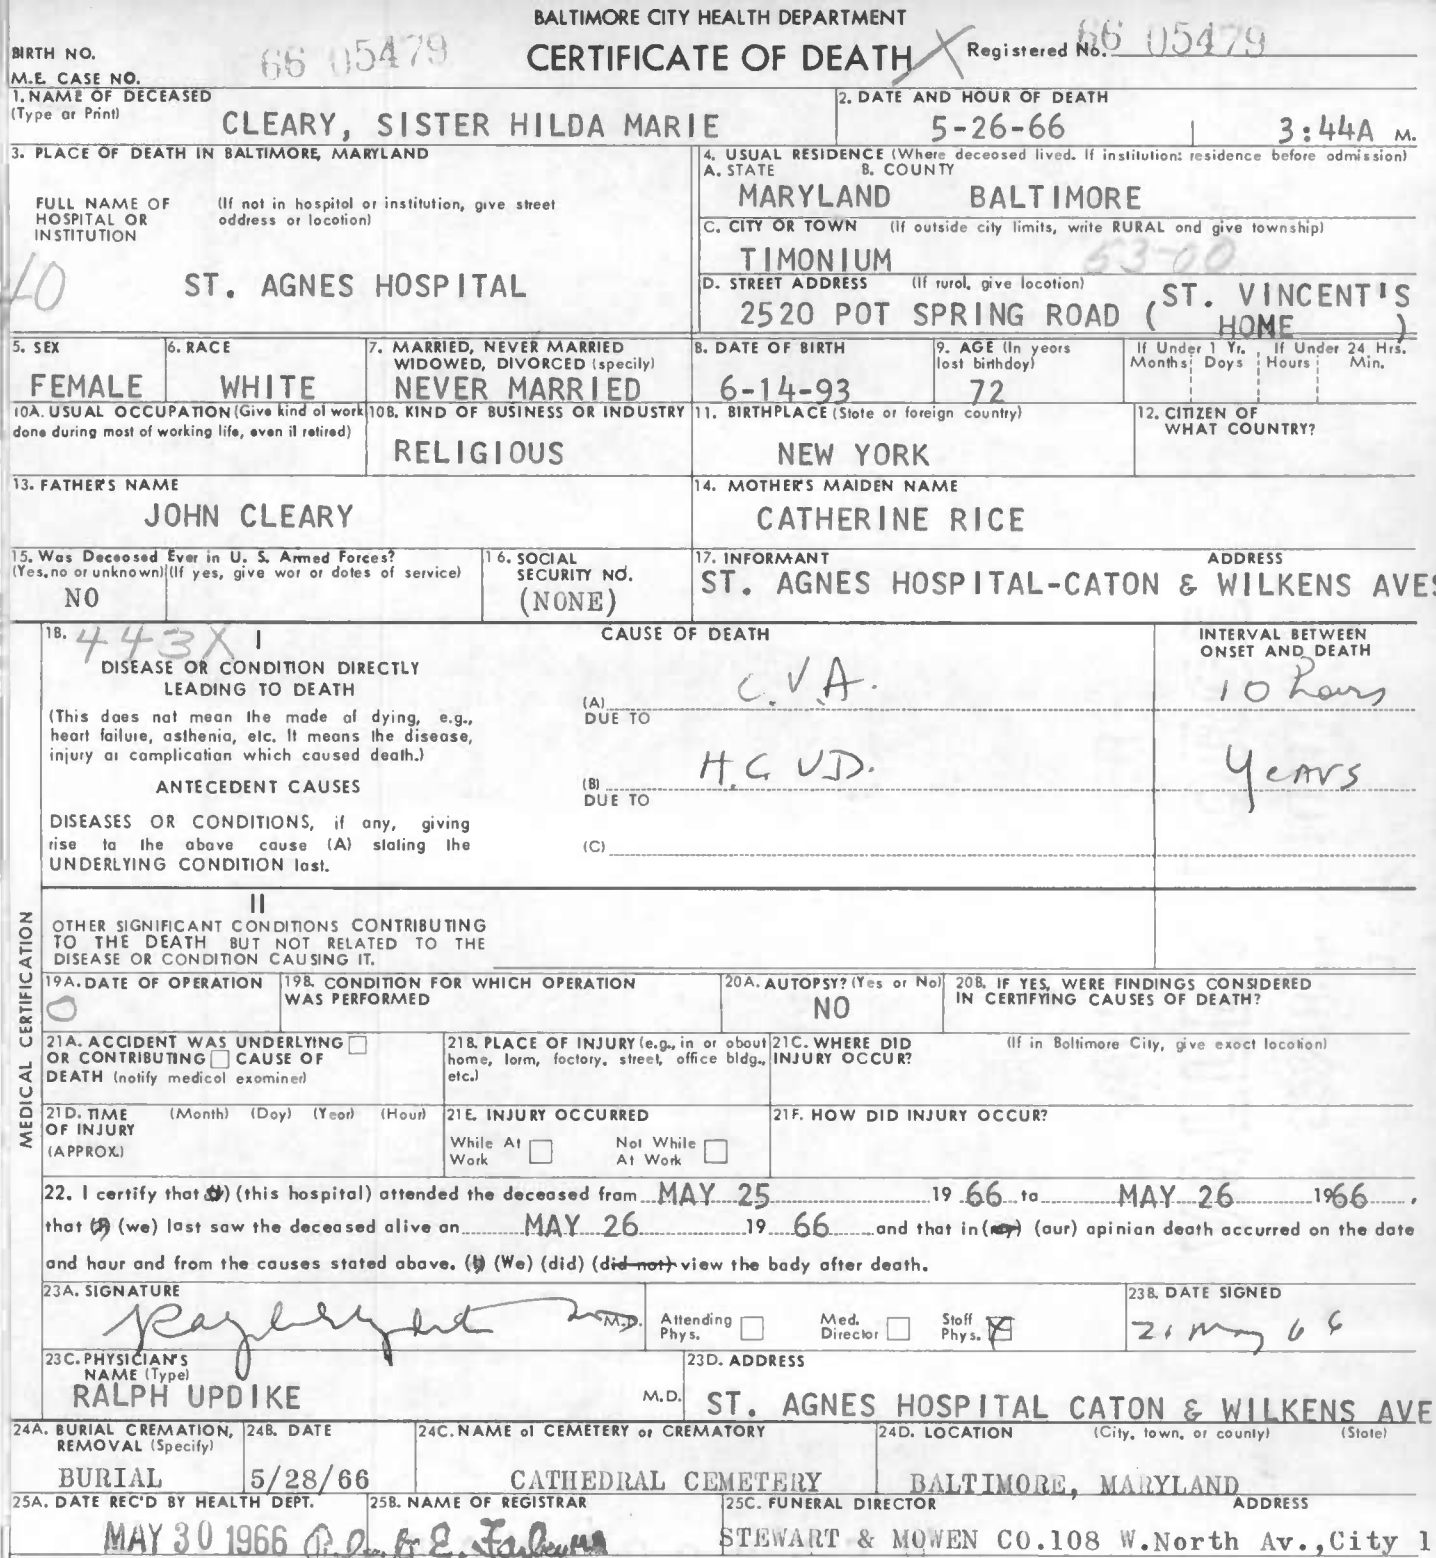 BALTIMORE CITY HEALTH DEPARTMENT
CERTIFICATE OF DEATH
BIRTH NO. 66 05479 Registered No. 66 05479
M.E. CASE NO.
1. NAME OF DECEASED
(Type or Print)
CLEARY, SISTER HILDA MARIE
2. DATE AND HOUR OF DEATH
5-26-66 3:44A M.
3. PLACE OF DEATH IN BALTIMORE, MARYLAND
FULL NAME OF HOSPITAL OR INSTITUTION
(If not in hospital or institution, give street address or location)
ST. AGNES HOSPITAL
4. USUAL RESIDENCE (Where deceased lived. If institution: residence before admission)
A. STATE B. COUNTY
MARYLAND BALTIMORE
C. CITY OR TOWN (If outside city limits, write RURAL and give township)
TIMONIUM 53-00
D. STREET ADDRESS (If rural, give location)
2520 POT SPRING ROAD (ST. VINCENT'S HOME)
5. SEX
FEMALE
6. RACE
WHITE
7. MARRIED, NEVER MARRIED
WIDOWED, DIVORCED (specify)
NEVER MARRIED
8. DATE OF BIRTH
6-14-93
9. AGE (In years last birthday)
72
If Under 1 Yr. Months Days
If Under 24 Hrs. Hours Min.
10A. USUAL OCCUPATION (Give kind of work done during most of working life, even if retired)
10B. KIND OF BUSINESS OR INDUSTRY
RELIGIOUS
11. BIRTHPLACE (State or foreign country)
NEW YORK
12. CITIZEN OF WHAT COUNTRY?
13. FATHER'S NAME
JOHN CLEARY
14. MOTHER'S MAIDEN NAME
CATHERINE RICE
15. Was Deceased Ever in U. S. Armed Forces?
(Yes, no or unknown) (If yes, give war or dates of service)
NO
16. SOCIAL SECURITY NO.
(NONE)
17. INFORMANT ADDRESS
ST. AGNES HOSPITAL-CATON & WILKENS AVES
MEDICAL CERTIFICATION
18. 443X I
CAUSE OF DEATH
INTERVAL BETWEEN ONSET AND DEATH
DISEASE OR CONDITION DIRECTLY
LEADING TO DEATH
(This does not mean the mode of dying, e.g.,
heart failure, asthenia, etc. It means the disease,
injury or complication which caused death.)
(A) C.V.A. 10 hours
DUE TO
ANTECEDENT CAUSES
(B) H.C.V.D. Years
DUE TO
DISEASES OR CONDITIONS, if any, giving
rise to the above cause (A) stating the
UNDERLYING CONDITION last.
(C)
II
OTHER SIGNIFICANT CONDITIONS CONTRIBUTING
TO THE DEATH BUT NOT RELATED TO THE
DISEASE OR CONDITION CAUSING IT.
19A. DATE OF OPERATION
0
19B. CONDITION FOR WHICH OPERATION WAS PERFORMED
20A. AUTOPSY? (Yes or No)
NO
20B. IF YES, WERE FINDINGS CONSIDERED IN CERTIFYING CAUSES OF DEATH?
21A. ACCIDENT WAS UNDERLYING
OR CONTRIBUTING CAUSE OF
DEATH (notify medical examiner)
21B. PLACE OF INJURY (e.g., in or about home, farm, factory, street, office bldg., etc.)
21C. WHERE DID INJURY OCCUR? (If in Baltimore City, give exact location)
21D. TIME OF INJURY (APPROX.) (Month) (Day) (Year) (Hour)
21E. INJURY OCCURRED
While At Work Not While At Work
21F. HOW DID INJURY OCCUR?
22. I certify that (I) (this hospital) attended the deceased from MAY 25 19 66 to MAY 26 1966,
that (I) (we) last saw the deceased alive on MAY 26 19 66 and that in (my) (our) opinion death occurred on the date
and hour and from the causes stated above. (I) (We) (did) (did not) view the body after death.
23A. SIGNATURE
M.D.
Attending Phys. Med. Director Staff Phys. X
23B. DATE SIGNED
May 66
23C. PHYSICIAN'S NAME (Type)
RALPH UPDIKE M.D.
23D. ADDRESS
ST. AGNES HOSPITAL CATON & WILKENS AVE
24A. BURIAL CREMATION, REMOVAL (Specify)
BURIAL
24B. DATE
5/28/66
24C. NAME of CEMETERY or CREMATORY
CATHEDRAL CEMETERY
24D. LOCATION (City, town, or county) (State)
BALTIMORE, MARYLAND
25A. DATE REC'D BY HEALTH DEPT.
MAY 30 1966
25B. NAME OF REGISTRAR
25C. FUNERAL DIRECTOR ADDRESS
STEWART & MOWEN CO.108 W.North Av.,City 1